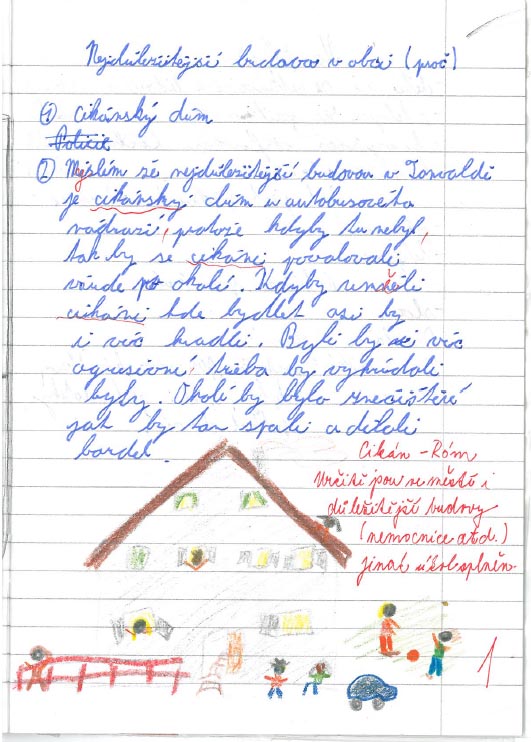 Nejdůležitější budova v obci (proč)
① cikánský dům
Policie
② Myslím ze nejdůležitější budovou v Tanvaldě
je cikánský dům u autobusového
nádraží, protože kdyby tu nebyl,
tak by se cikáni povalovali
všude po okolí. Kdyby neměli
cikáni kde bydlet asi by
i víc kradli. Byli by víc
agresivní, třeba by vykrádali
byty. Okolí by bylo znečištěné
jak by tam spali a dělali
bordel.
Cikán - Róm
Určitě jsou ve městě i
důležitější budovy
(nemocnice atd.)
jinak úkol splněn.
1